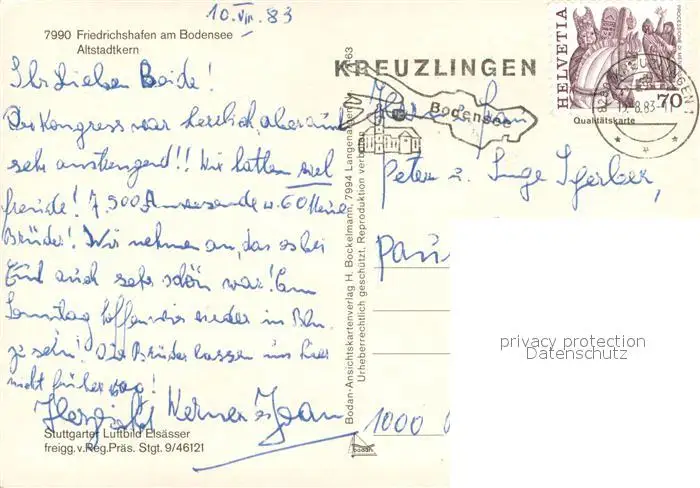 10. VIII. 83
7990 Friedrichshafen am Bodensee
Altstadtkern
Ihr Lieben Beide!
Der Kongress war herrlich, aber auch
sehr anstrengend!! Wir hatten viel
Freude! 7.500 Anwesende u. 60 neue
Brüder! Wir nehmen an, das es bei
Euch auch sehr schön war! Am
Sonntag hoffen wir wieder in Bln.
zu sein! Die Brüder lassen uns hier
nicht früher weg!
Herzlichst Werner u. Joan
Stuttgarter Luftbild Elsässer
freigg. v. Reg. Präs. Stgt. 9/46121
Bodan-Ansichtskartenverlag H. Bockelmann, 7994 Langenargen
Urheberrechtlich geschützt. Reproduktion verboten
bodan
KREUZLINGEN
Bodensee
HELVETIA
70
8.83
Qualitätskarte
Peter u. Inge
1000
privacy protection
Datenschutz